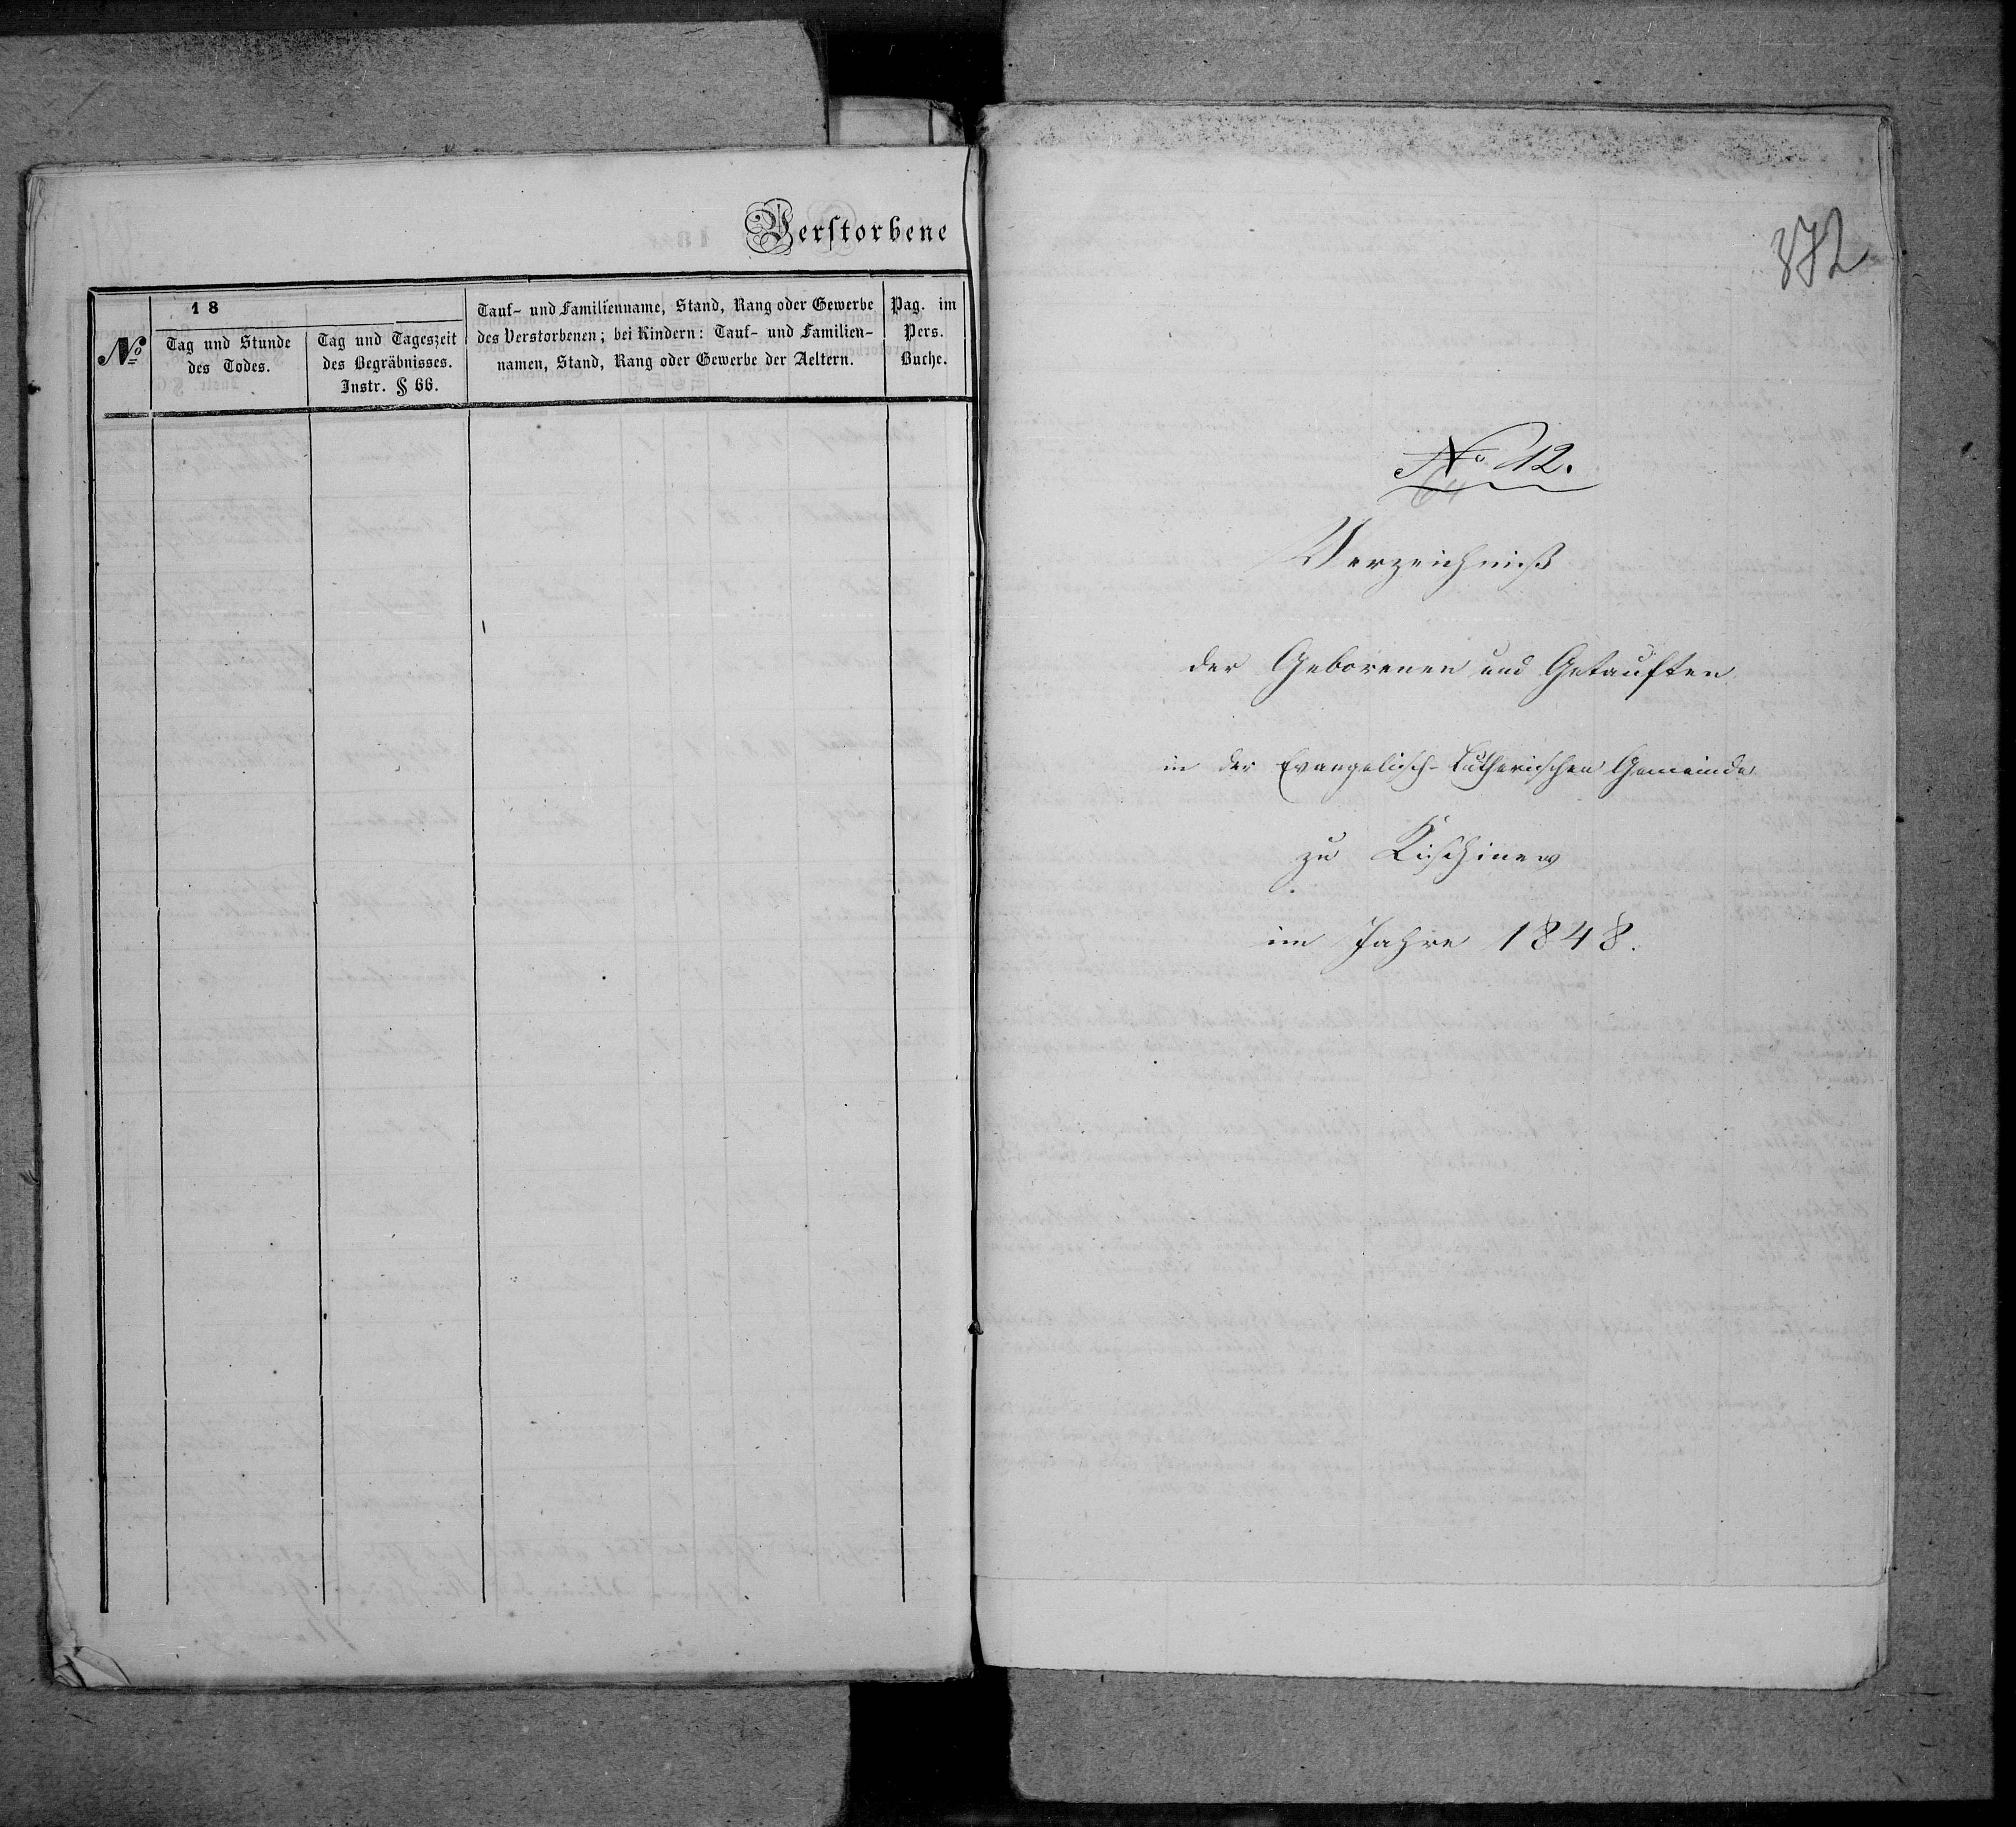 Verstorbene
18
No
Tag und Stunde
des Todes.
Tag und Tageszeit
des Begräbnisses.
Instr. § 66.
Tauf- und Familienname, Stand, Rang oder Gewerbe
des Verstorbenen; bei Kindern: Tauf- und Familien-
namen, Stand, Rang oder Gewerbe der Aeltern.
Pag. im
Pers.
Buche.
372
No 12.
Verzeichniß
der Geborenen und Getauften
in der Evangelisch-Lutherischen Gemeinde
zu Kischinew
im Jahre 1848.